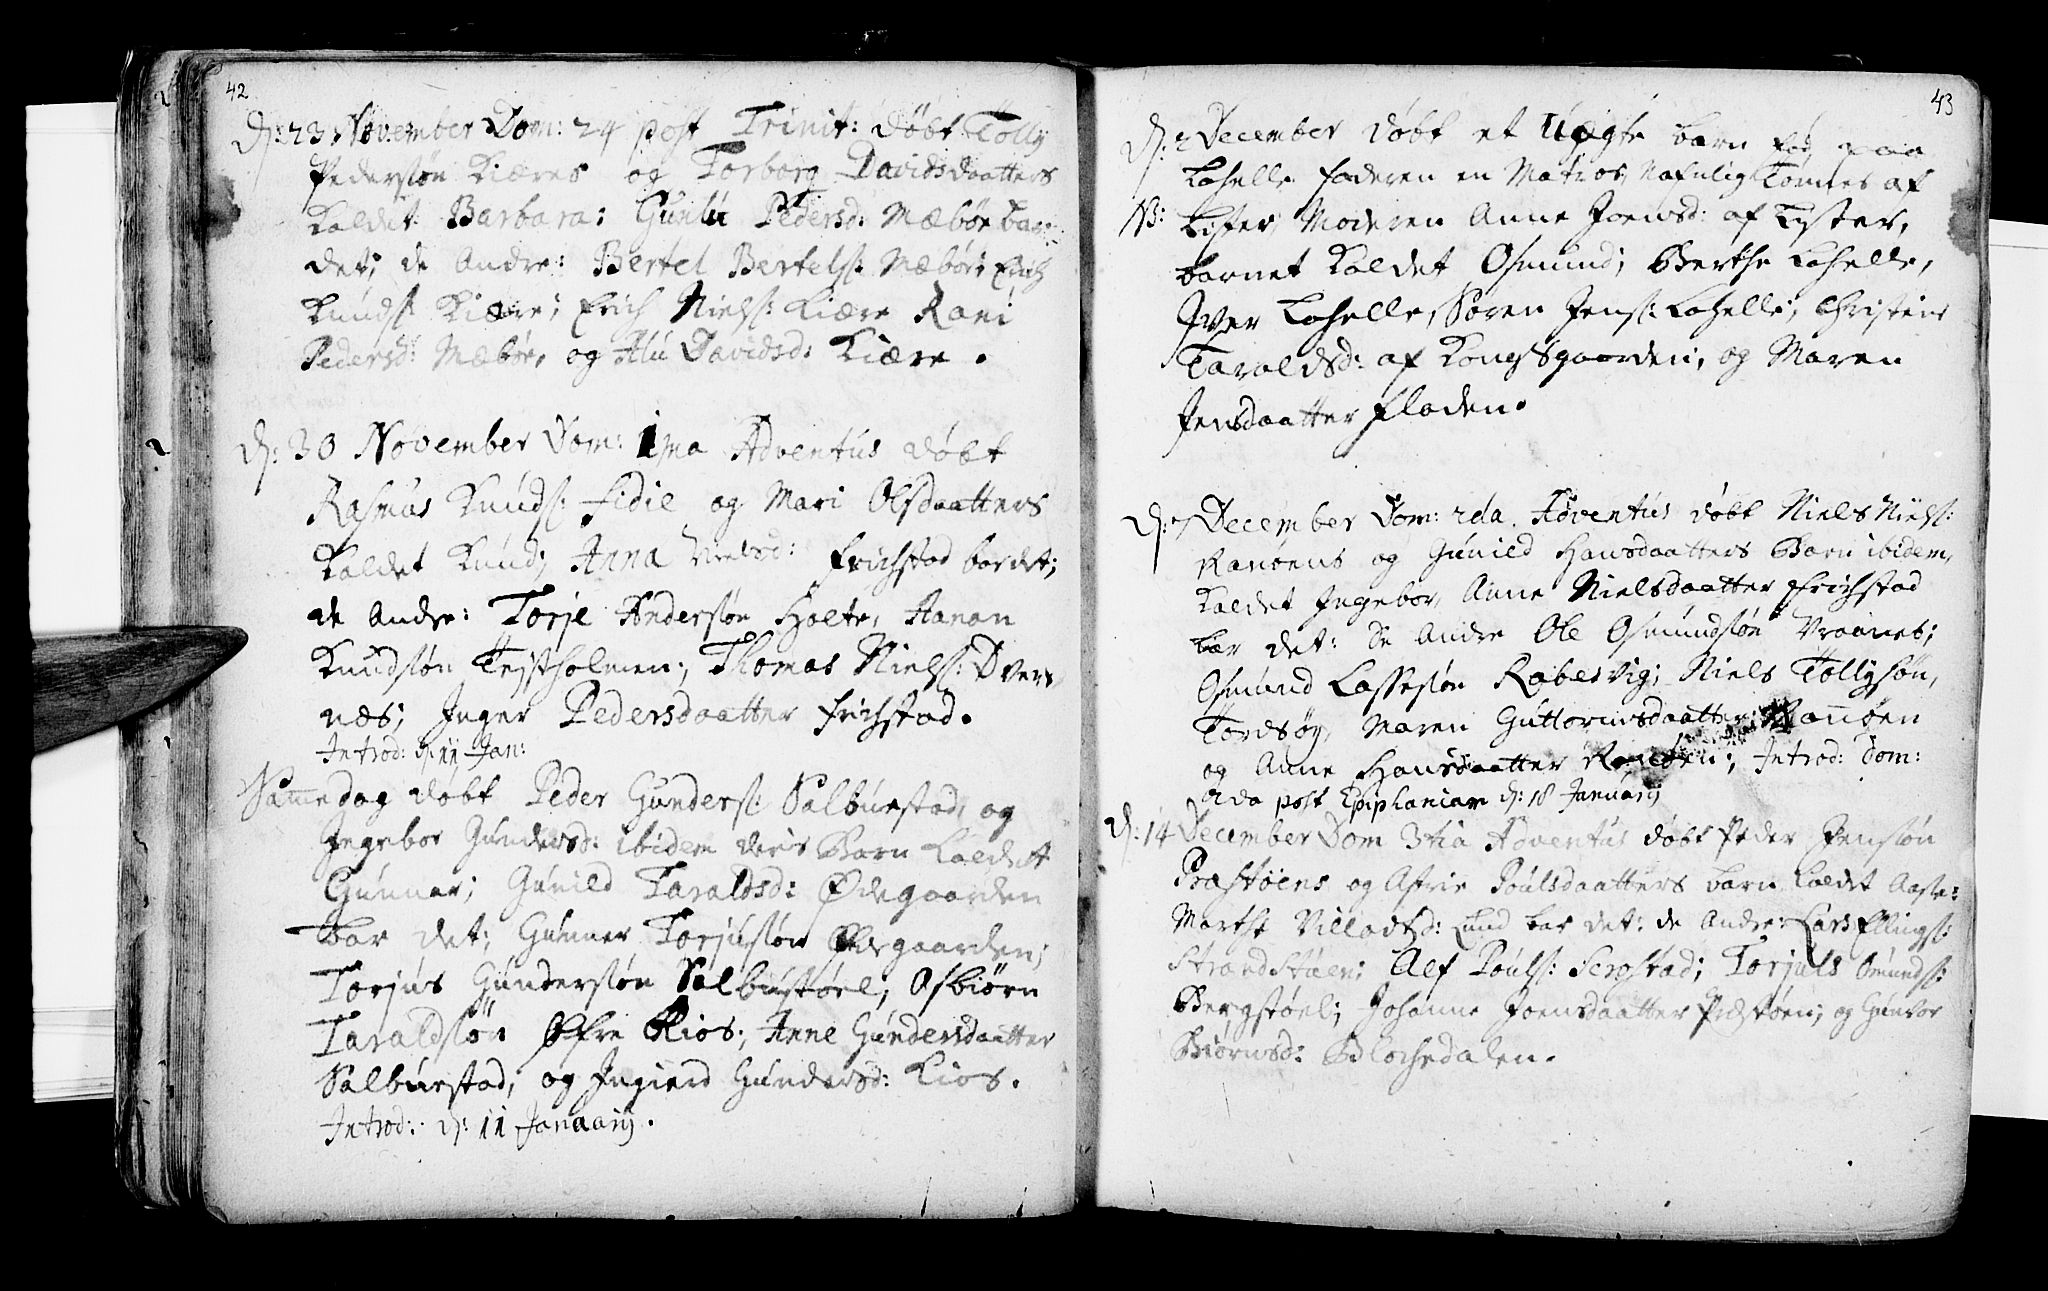 42
D: 23 November Dom: 24 post Trinit: døbt Tolly
Pedersøn Kiæres og Torborg Davidsdaatters
kaldet Barbara; Gunlu Pedersd: Mæbøe bar
det; de Andre: Bertel Bertels: Mæbøe; Erich
Knuds: Kiære; Erich Niels: Kiære Rani
Pedersd: Mæbøe, og Alu Davidsd: Kiære.
D: 30 November Dom: 1ma Adventus døbt
Rasmus Knuds: Fidie og Mari Olsdaatters
kaldet Knud; Anna Nielsd: Erichstad bar det;
de Andre: Torje Andersøn Holte, Aanon
Knudsøn Tejstholmen; Thomas Niels: Dvers
næs; Inger Pedersdaatter Erichstad.
Introd: d: 11 Jan:
Samme dag døbt Peder Gunders: Salbuestad, og
Ingebor Gundersd: ibidem deris Barn kaldett
Gunnar; Gunild Taraldsd: Ødegaarden
bar det; Gunner Torjusøn Ødegaarden;
Torjus Gundersøn Salbustøel; Asbiørn
Taraldsøn Øfre Kios; Anne Gundersdaatter
Salbuestad, og Ingierd Gundersd: Kios.
Introd: d: 11 Januarij.
43
D: 2 December døbt et Uægte barn fød paa
Lahelle faderen en Matros Nafnlig Tønnes af
NB: Lister, Moderen Anne Joensd: af Lyster,
barnet kaldet Osmund; Berthe Lahelle,
Iver Lahelle, Søren Jens: Lahelle; Christens
Taraldsd: af Kongsgaarden, og Maren
Jensdaatter Floden.
D: 7 December Dom: 2da Adventus døbt Niels Niels:
Ranøens og Gunild Hansdaatters Barn ibidem,
kaldet Ingebor, Anne Nielsdaatter Erichstad
bar det: De Andre Ole Osmundsøn Vraanes;
Osmund Lassesøn Rabesvig; Niels Tollysøn,
Tordsøy, Maren Guttormsdaatter Ranøen
og Anne Hansdaatter Ranøen; Introd: Dom:
2da post Epiphaniam d: 18 Januarij
D: 14 December Dom 3tia Adventus døbt Peder Jensøn
Præstøens og Astrie Poulsdaatters barn kaldet Aaste:
Marthe Villadsd: Lund bar det: de Andre: Lars Ellings:
Strandstøen; Alef Pouls: Sergstad; Torjuls Omunds:
Bergstøel; Johanne Joensdaatter Præstøen; og Gunvor
Biørnsd: Blochedalen.